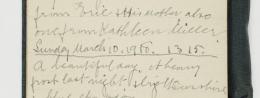 from Eric & his mother also
one from Kathleen Miller
Sunday March 10. 1950. 13.15.
A beautiful day. A heavy
frost last night & bright sunshine